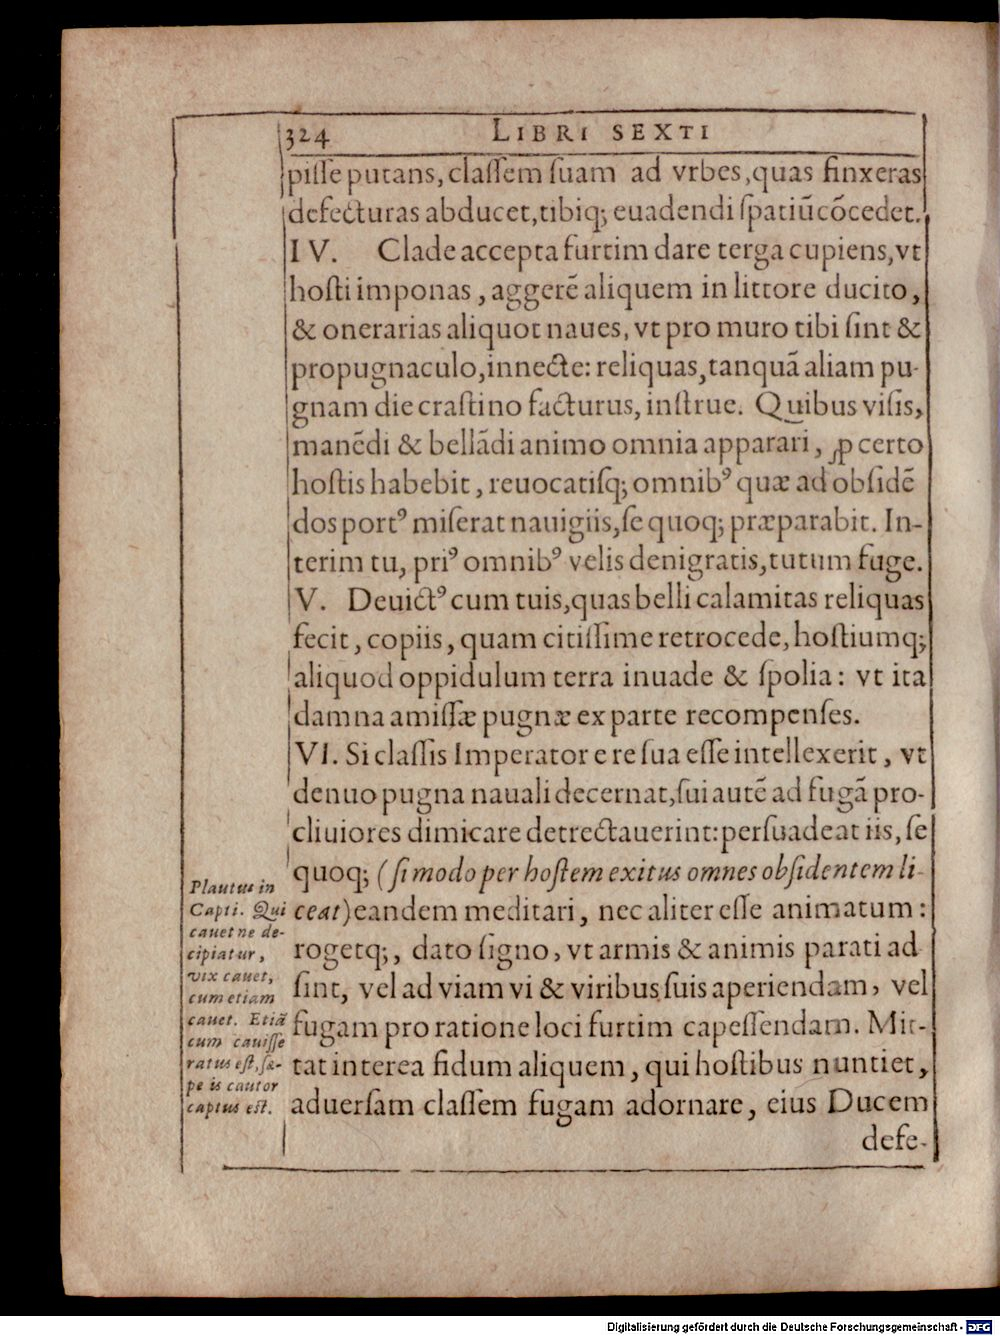 324 LIBRI SEXTI
piſſe putans, claſſem ſuam ad vrbes, quas finxeras
defecturas abducet, tibiq; euadendi ſpatiū cōcedet.
IV. Clade accepta furtim dare terga cupiens, vt
hoſti imponas, aggerē aliquem in littore ducito,
& onerarias aliquot naues, vt pro muro tibi ſint &
propugnaculo, innecte: reliquas, tanquā aliam pu-
gnam die craſtino facturus, inſtrue. Quibus viſis,
manēdi & bellādi animo omnia apparari, ꝓ certo
hoſtis habebit, reuocatiſq; omnibꝰ quæ ad obſidē
dos portꝰ miſerat nauigiis, ſe quoq; præparabit. In-
terim tu, priꝰ omnibꝰ velis denigratis, tutum fuge.
V. Deuictꝰ cum tuis, quas belli calamitas reliquas
fecit, copiis, quam citiſſime retrocede, hoſtiumq;
aliquod oppidulum terra inuade & ſpolia: vt ita
damna amiſſæ pugnæ ex parte recompenſes.
VI. Si claſſis Imperator e re ſua eſſe intellexerit, vt
denuo pugna nauali decernat, ſui autē ad fugā pro-
cliuiores dimicare detrectauerint: perſuadeat iis, ſe
quoq; (ſi modo per hoſtem exitus omnes obſidentem li-
ceat) eandem meditari, nec aliter eſſe animatum:
rogetq;, dato ſigno, vt armis & animis parati ad
ſint, vel ad viam vi & viribus ſuis aperiendam, vel
fugam pro ratione loci furtim capeſſendam. Mit-
tat interea fidum aliquem, qui hoſtibus nuntiet,
aduerſam claſſem fugam adornare, eius Ducem
defe-
Plautus in
Capti. Qui
cauet ne de-
cipiatur,
vix cauet,
cum etiam
cauet. Etiā
cum cauiſſe
ratus eſt, ſæ-
pe is cautor
captus eſt.
Digitalisierung gefördert durch die Deutsche Forschungsgemeinschaft - DFG